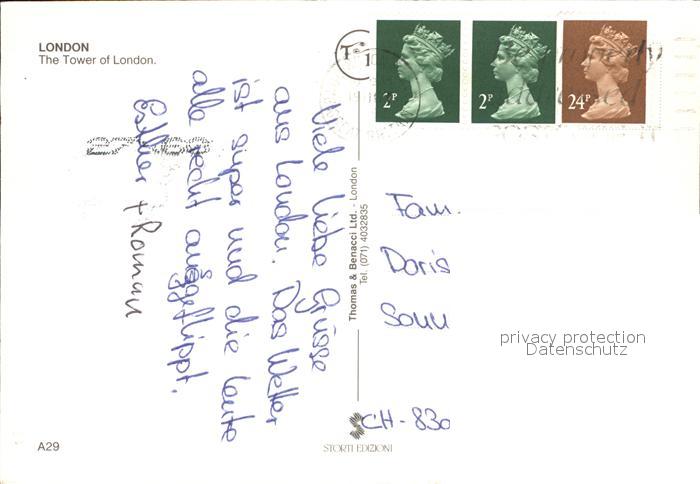 LONDON
The Tower of London.
T
2P
2P
24P
Viele liebe Grüsse
aus London. Das Wetter
ist super und die Leute
alle recht ausgeflippt.
Esther + Roman
Thomas & Benacci Ltd. - London
Tel. (071) 4032835
Fam.
Doris
Sonn
CH-830
privacy protection
Datenschutz
A29
STORTI EDIZIONI